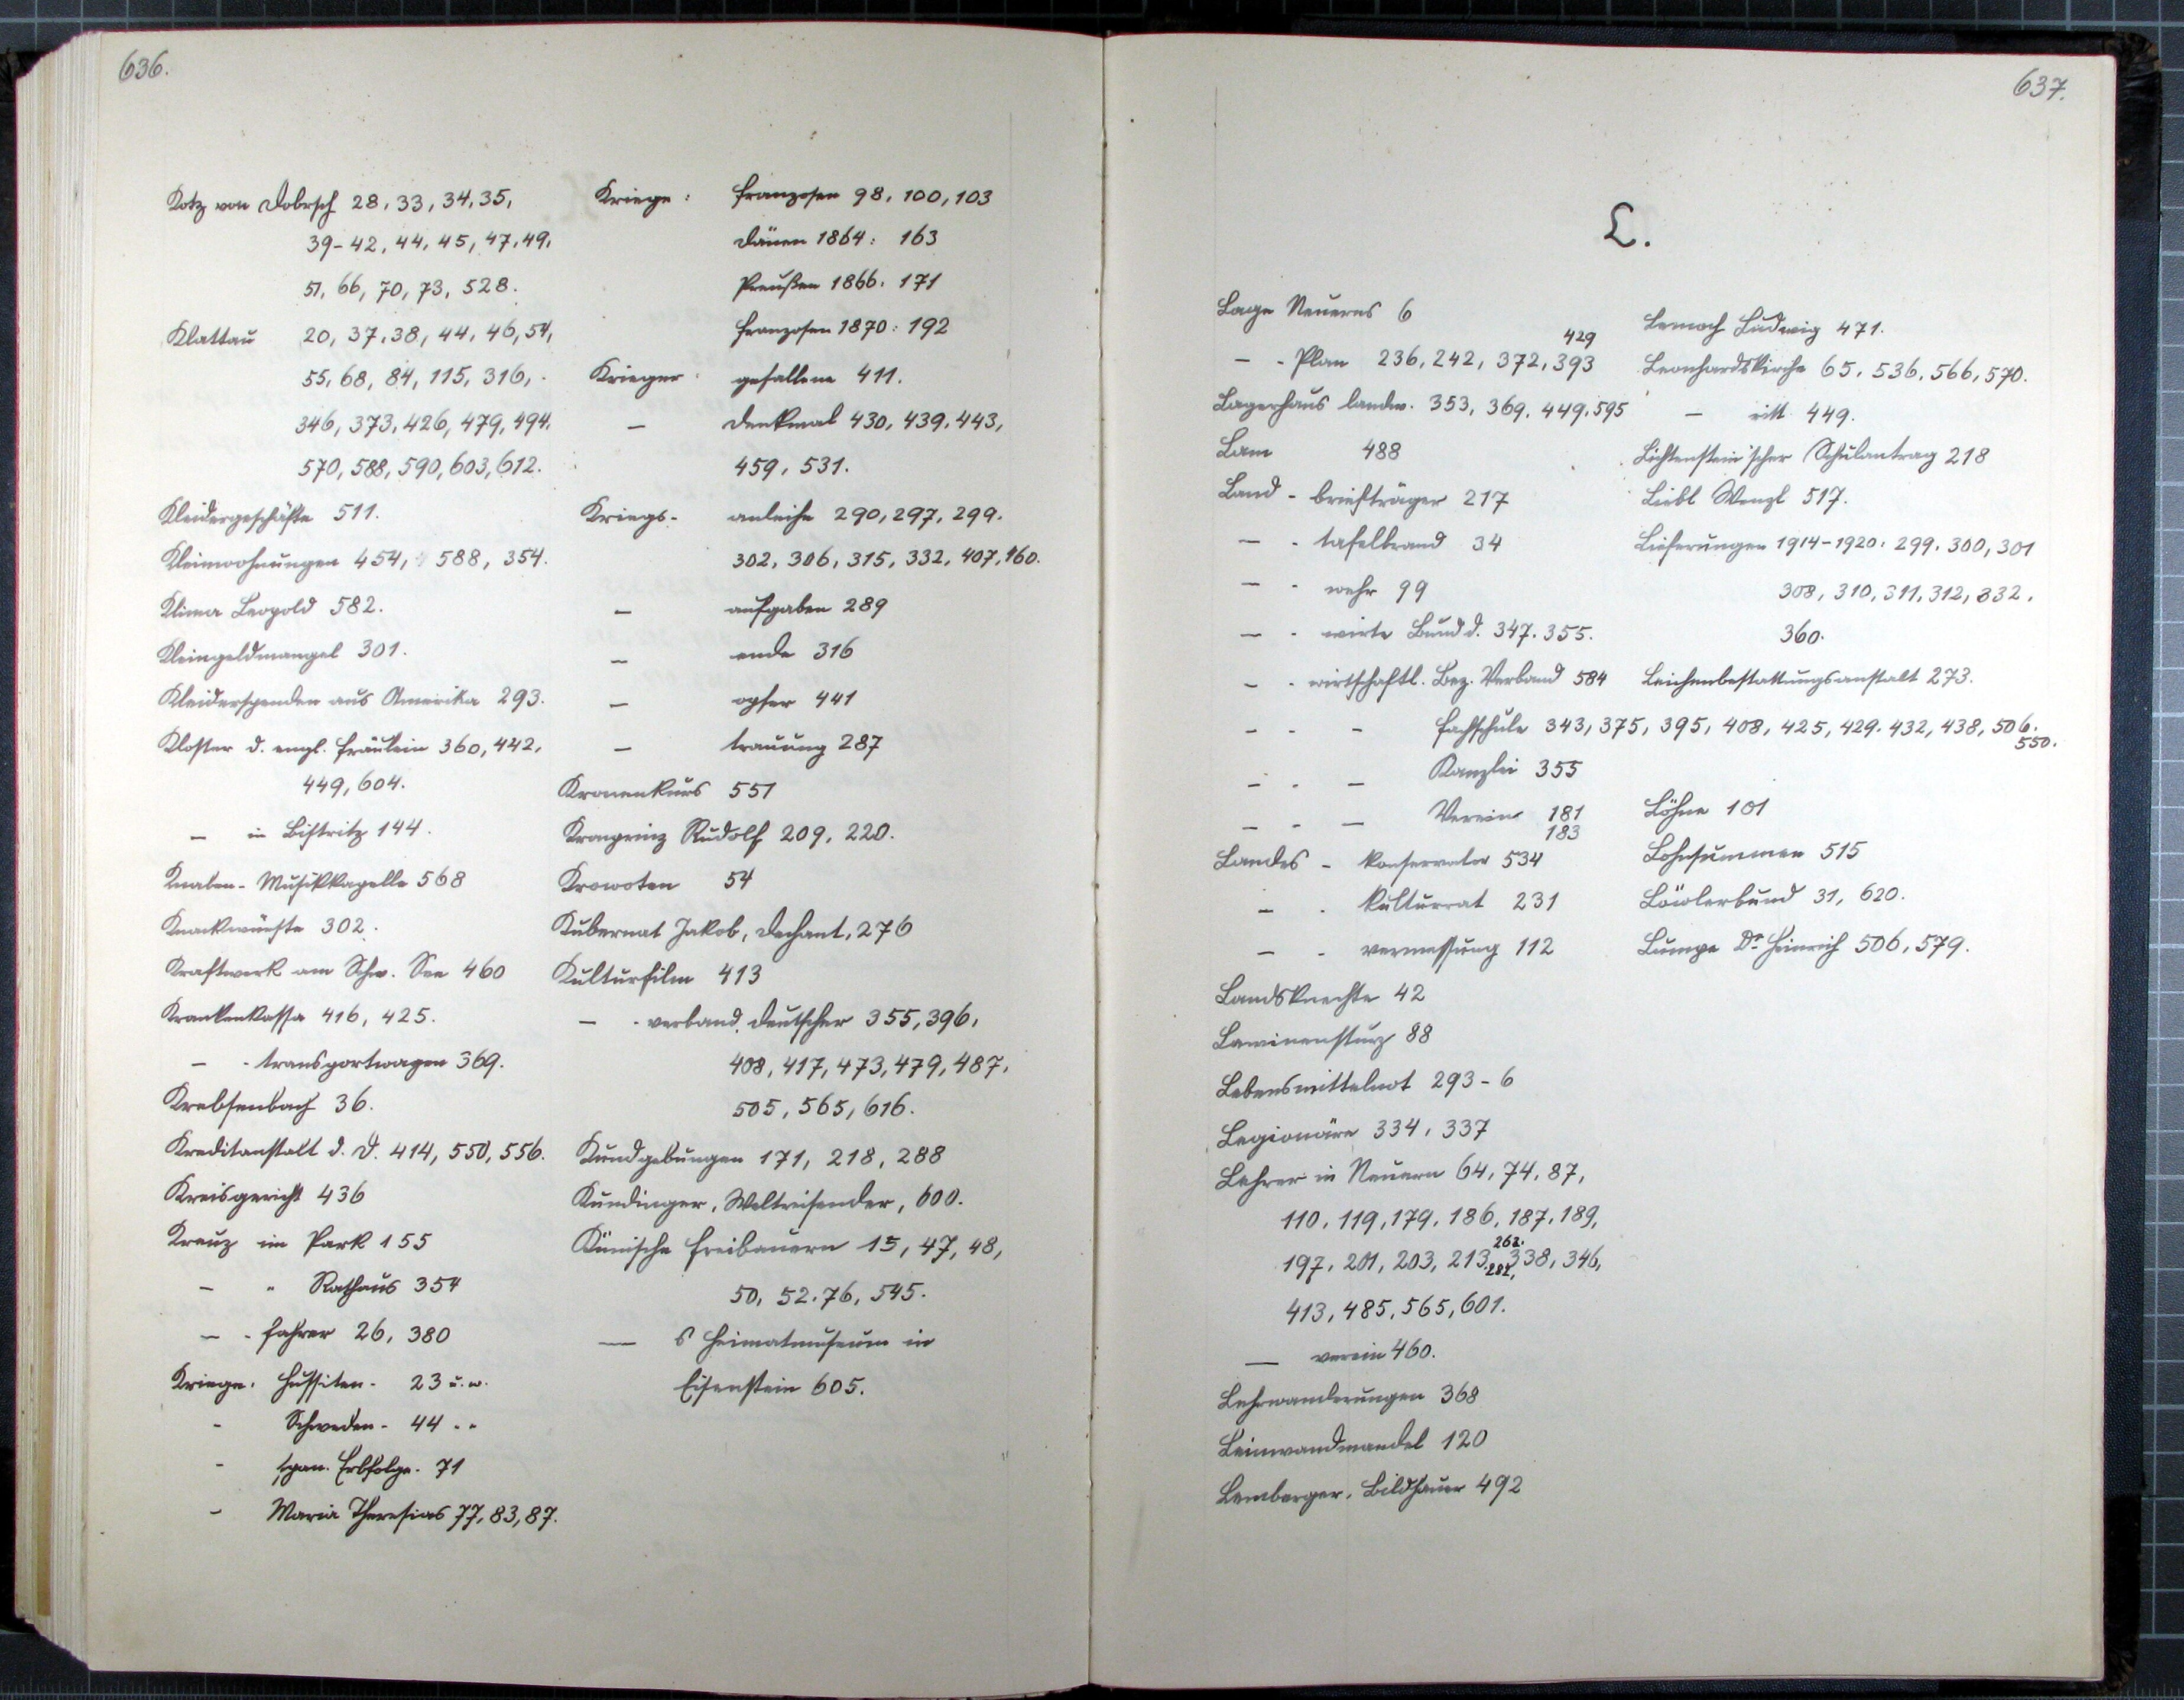 636.
Kotz von Dobrsch 28, 33, 34, 35,
39-42, 44, 45, 47, 49,
51, 66, 70, 73, 528.
Klattau 20, 37, 38, 44, 46, 54,
55, 68, 84, 115, 316,
346, 373, 426, 479, 494,
570, 588, 590, 603, 612.
Kleidergeschäfte 511.
Kleinwohnungen 454, 588, 354.
Klima Leopold 582.
Kleingeldmangel 301.
Kleiderspenden aus Amerika 293.
Kloster d. engl. Fräulein 360, 442,
449, 604.
— in Bistritz 144.
Knaben-Musikkapelle 568
Knackwürste 302.
Kraftwerk am Schw. See 460
Krankenkassa 416, 425.
— - transportwagen 369.
Krebsenbach 36.
Kreditanstalt d. D. 414, 550, 556.
Kreisgericht 436
Kreuz im Park 155
— " Rathaus 354
— - fahrer 26, 380
Kriege: Hussiten- 23 u. w.
- Schweden- 44 "
- span. Erbfolge- 71
- Maria Theresias 77, 83, 87.
Kriege: Franzosen 98, 100, 103
Dänen 1864: 163
Preußen 1866: 171
Franzosen 1870: 192
Krieger gefallene 411.
— Denkmal 430, 439, 443,
459, 531.
Kriegs- anleihe 290, 297, 299.
302, 306, 315, 332, 407, 160.
— aufgaben 289
— ende 316
— opfer 441
— trauung 287
Kronenkurs 551
Kronprinz Rudolf 209, 220.
Krowoten 54
Kubernat Jakob, Dechant, 276
Kulturfilm 413
— - verband, deutscher 355, 396,
408, 417, 473, 479, 487,
505, 565, 616.
Kundgebungen 171, 218, 288
Kundinger, Weltreisender, 600.
Künische Freibauern 15, 47, 48,
50, 52, 76, 545.
— s Heimatmuseum in
Eisenstein 605.
637.
L.
Lage Neuerns 6
429
— - Plan 236, 242, 372, 393
Lagerhaus landw. 353, 369, 449, 595
Lam 488
Land - briefträger 217
— - tafelbrand 34
— - wehr 99
— - wirte Bund d. 347, 355.
— - wirtschaftl. Bez. Verband 584
- - - Fachschule 343, 375, 395, 408, 425, 429, 432, 438, 506.
550.
- - — Kanzlei 355
— - — Verein 181
183
Landes - konservator 534
— - kulturrat 231
— - vermessung 112
Landsknechte 42
Lawinensturz 88
Lebensmittelnot 293-6
Legionäre 334, 337
Lehrer in Neuern 64, 74, 87,
110, 119, 179, 186, 187, 189,
262.
197, 201, 203, 213, 338, 346,
282,
413, 485, 565, 601.
— verein 460.
Lehrwanderungen 368
Leinwandmandel 120
Lemberger, Bildhauer 492
Lernoch Ludwig 471.
Leonhardskirche 65, 536, 566, 570.
— ritt 449.
Lichtenstein'scher Schulantrag 218
Liebl Wenzl 517.
Lieferungen 1914-1920: 299, 300, 301
308, 310, 311, 312, 332,
360.
Leichenbestattungsanstalt 273.
Löhne 101
Lohnsummen 515
Löwlerbund 31, 620.
Lumpe Dr. Heinrich 506, 579.